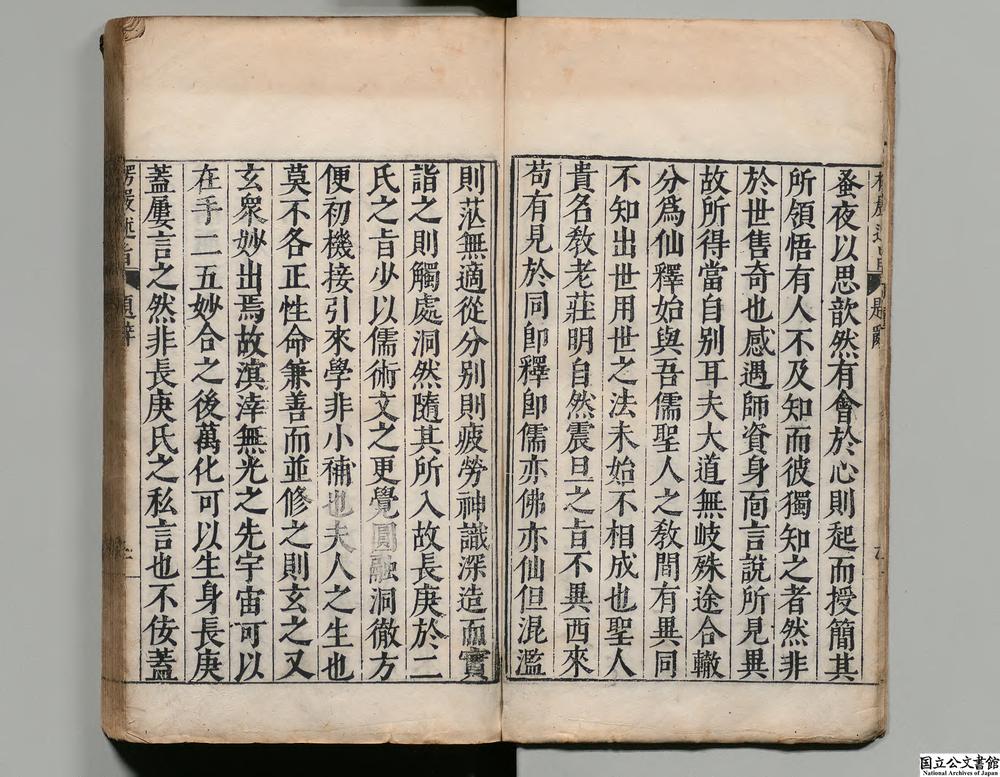 蚤夜以思歆然有會於心則起而授簡其
所領悟有人不及知而彼獨知之者然非
於世售奇也感遇師資身卮言說所見異
故所得當自别耳夫大道無岐殊途合轍
分爲仙釋始與吾儒聖人之敎間有異同
不知出世用世之法未始不相成也聖人
貴名敎老莊明自然震旦之旨不異西來
苟有見於同卽釋卽儒亦佛亦仙但混濫
則茫無適從分别則疲勞神識深造而實
詣之則觸處洞然隨其所入故長庚於二
氏之旨少以儒術文之更覺圓融洞徹方
便初機接引來學非小補也夫人之生也
莫不各正性命兼善而並修之則玄之又
玄衆妙出焉故滇涬無光之先宇宙可以
在手二五妙合之後萬化可以生身長庚
蓋屢言之然非長庚氏之私言也不佞蓋
楞嚴述旨 題辭
国立公文書館
National Archives of Japan